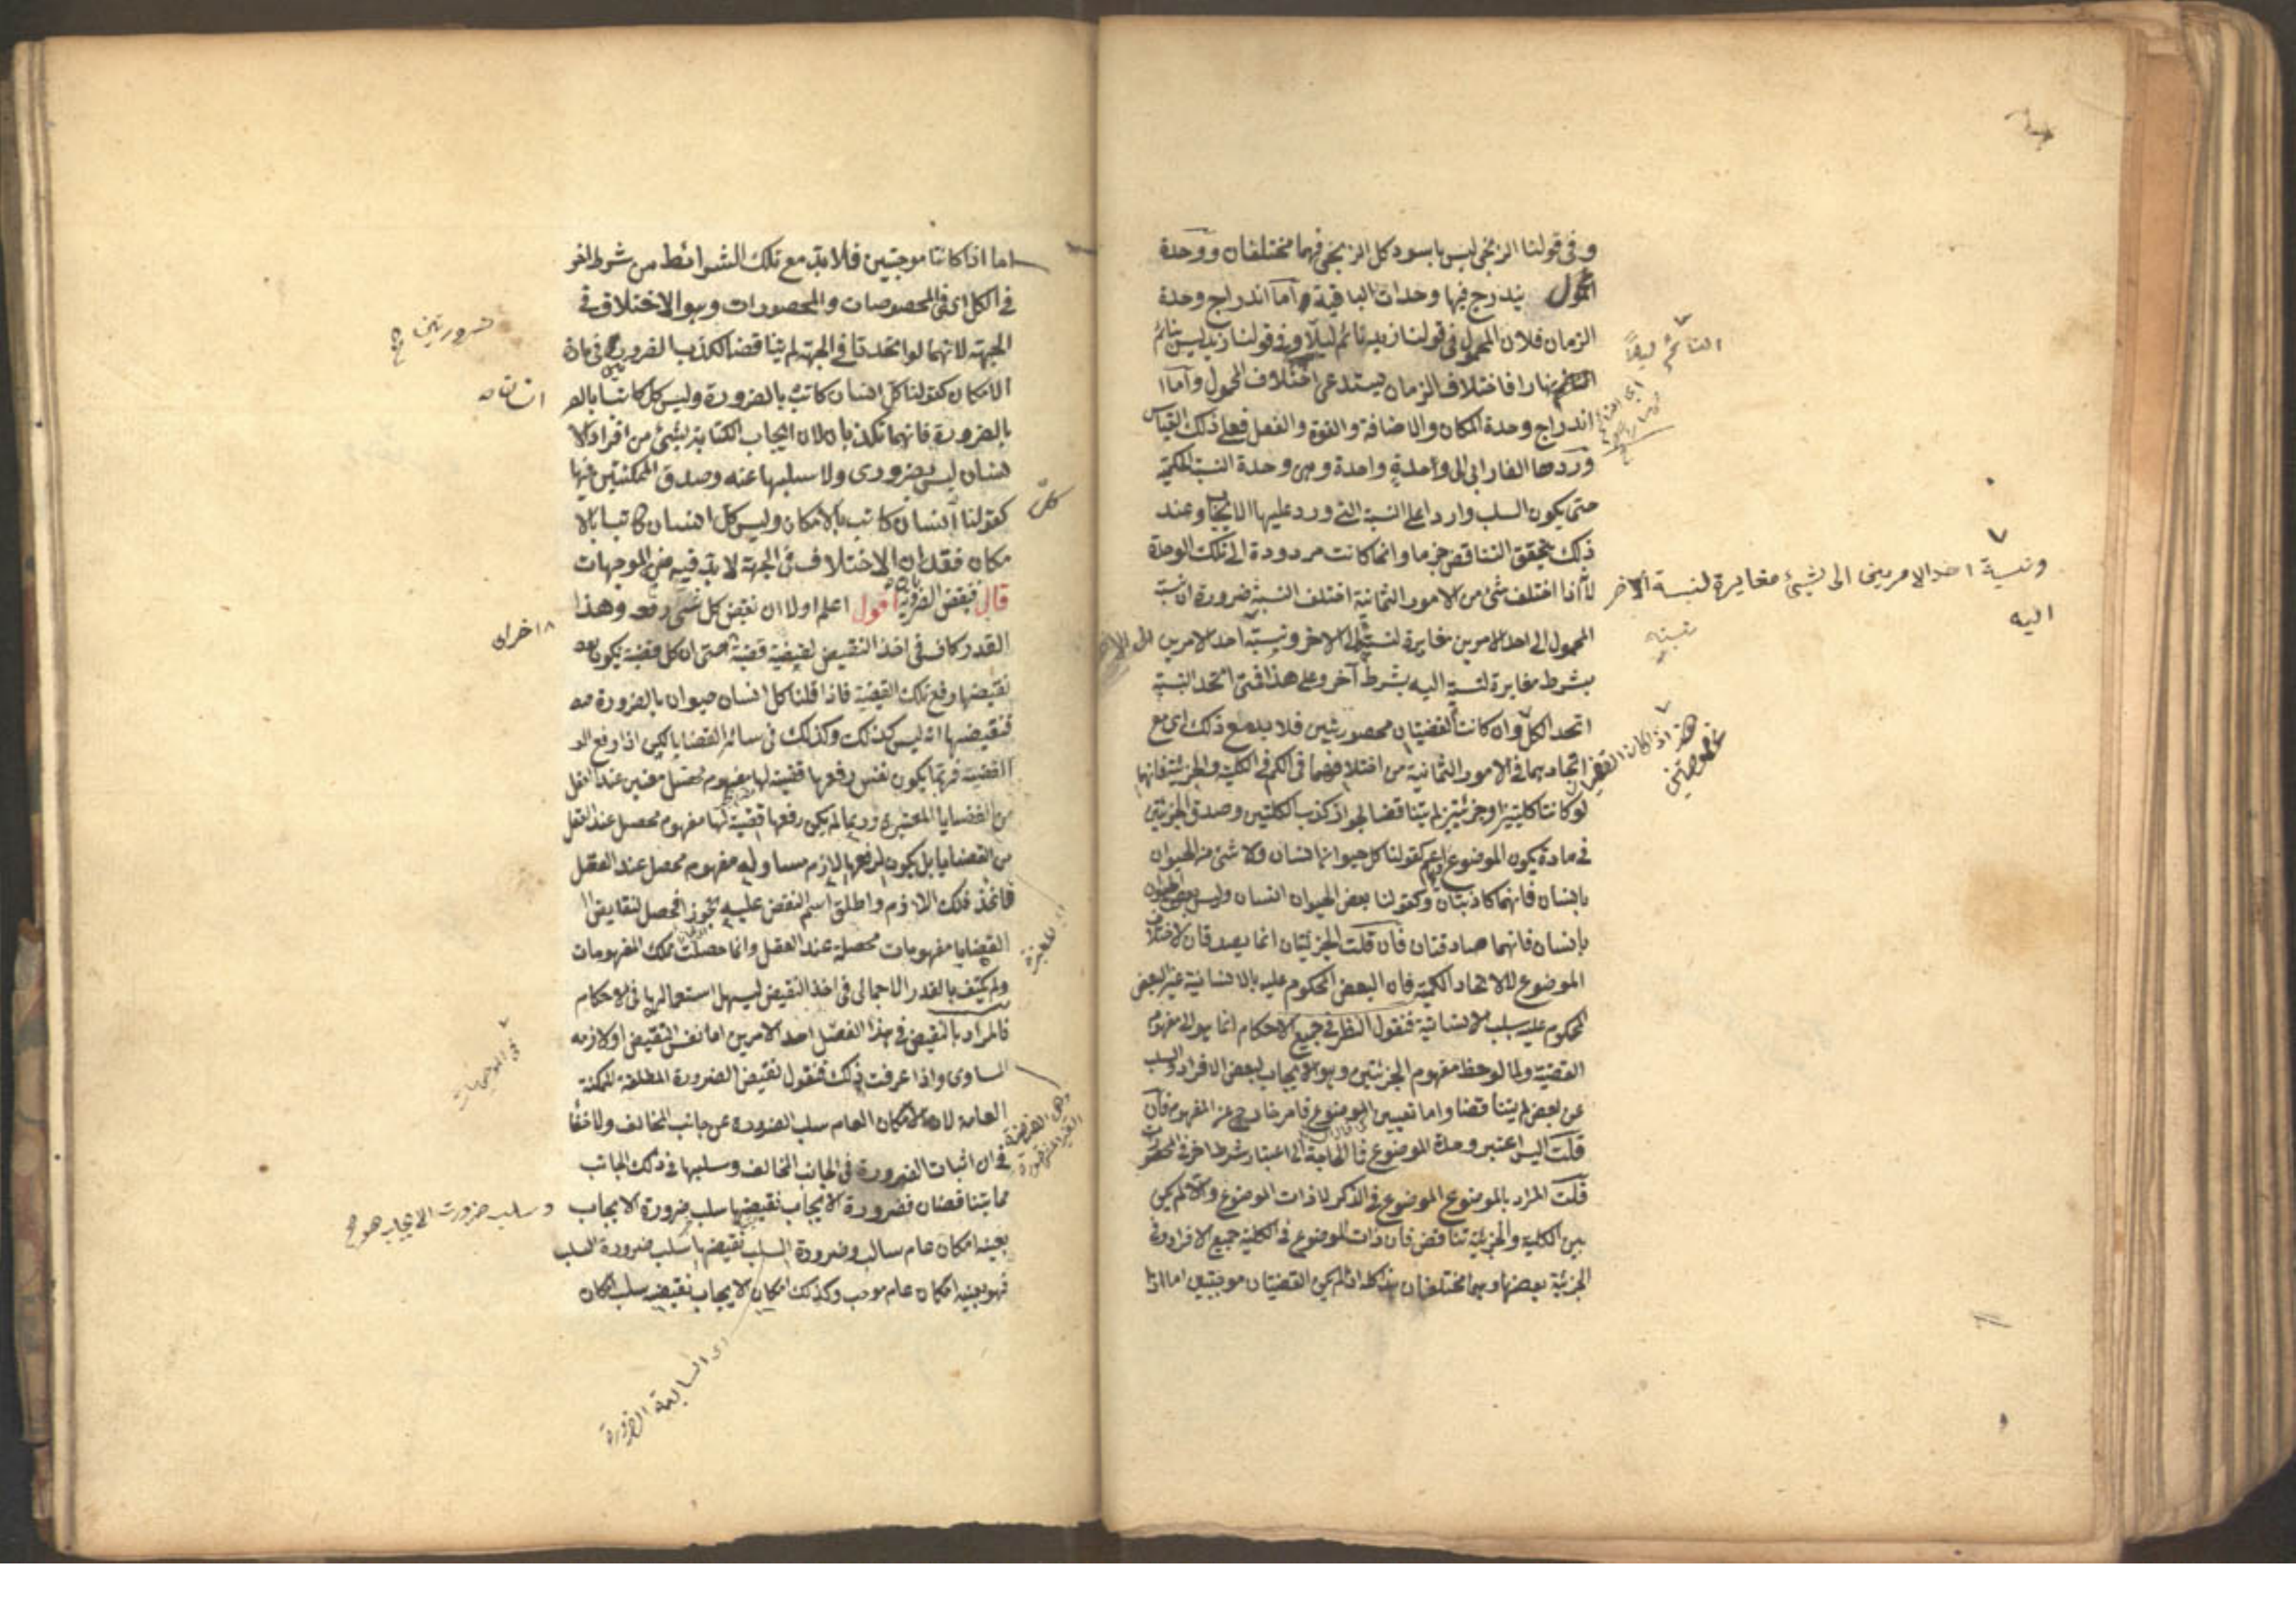 وفى قولنا الزنجى ليس باسود كل الزنجى فهما مختلفان ووحدة
المحمول يندرج فيها وحدات الباقية واما اندراج وحدة
الزمان فلان المحمول فى قولنا زيد نائم ليلا وفى قولنا زيد ليس بنائم
نهارا فاختلاف الزمان يستدعى اختلاف المحمول واما
اندراج وحدة المكان والاضافة والقوة والفعل فعلى ذلك القياس
وردها الفارابى الى واحدة واحدة وهى وحدة النسبة الحكمية
حتى يكون السلب واردا على النسبة التى ورد عليها الايجاب وعند
ذلك يتحقق التناقض جزما وانما كانت مردودة الى تلك الوحدة
لانه اذا اختلف شئ من الامور الثمانية اختلف النسبة ضرورة ان نسبة
المحمول الى احد الامرين مغايرة لنسبته الى الاخر ونسبة احد الامرين
بشرط مغايرة لنسبة اليه بشرط آخر وعلى هذا فمتى اتحد النسبة
اتحد الكل وان كانت القضيتان محصورتين فلا بد مع ذلك اى مع
اتحادهما فى الامور الثمانية من اختلافهما فى الكم فى الكلية والجزئية فانهما
لو كانتا كليتين او جزئيتين لم يتناقضا لجواز كذب الكليتين وصدق الجزئيتين
فى مادة يكون الموضوع اعم كقولنا كل حيوان انسان ولا شئ من الحيوان
بانسان فانهما كاذبتان وكقولنا بعض الحيوان انسان وليس بعض الحيوان
بانسان فانهما صادقتان فان قلت الجزئيتان انما يصدقان لاختلاف
الموضوع لا لاتحاد الكمية فان البعض المحكوم عليه بالانسانية غير البعض
المحكوم عليه بسلب الانسانية فنقول النظر فى جميع الاحكام انما هو الى مفهوم
القضية ولما لوحظ مفهوم الجزئيتين وهو الايجاب لبعض الافراد والسلب
عن بعض لم يتناقضا واما تعيين الموضوع فامر خارج عن المفهوم فان
قلت اليس اعتبر وحدة الموضوع فما الحاجة الى اعتبار شرط اخر فى المحصورات
قلت المراد بالموضوع الموضوع فى الذكر لا ذات الموضوع والا لم يكن
بين الكلية والجزئية تناقض فان ذات الموضوع فى الكلية جميع الافراد وفى
الجزئية بعضها وهما مختلفان هذا كله اذا لم يكن القضيتان موجهتين اما اذا
ونسبة احد الامرين الى شئ مغايرة لنسبة الاخر
اليه
هذا اذا كان القضيتان
مخصوصتين
اما اذا كانتا موجهتين فلا بد مع تلك الشرائط من شرط اخر
فى الكل اى فى المخصوصات والمحصورات وهو الاختلاف فى
الجهة لانهما لو اتحدتا فى الجهة لم يتناقضا لكذب الضروريتين فى مادة
الامكان كقولنا كل انسان كاتب بالضرورة وليس كل كاتبا بالضر
بالضرورة فانهما تكذبان لان ايجاب الكتابة لشئ من افراد الا
نسان ليس بضرورى ولا سلبها عنه وصدق الممكنتين فيها
كقولنا انسان كاتب بالامكان وليس كل انسان كاتبا بالا
مكان فقد ان الاختلاف فى الجهة لا بد فيه من الموجهات
قال فنقيض الضرورية اقول اعلم اولا ان نقيض كل شئ رفعه وهذا
القدر كاف فى اخذ النقيض لقضية قضية حتى ان كل قضية يكون
نقيضها رفع تلك القضية فاذا قلنا كل انسان حيوان بالضرورة
فنقيضها انه ليس كذلك وكذلك فى سائر القضايا لكن اذا رفع
القضية فربما يكون نفس رفعها قضية لها مفهوم محصل معين عند العقل
من القضايا المعتبرة وربما لم يكن رفعها قضية لها مفهوم محصل عند العقل
من القضايا بل يكون لرفعها لازم مساو وله مفهوم محصل عند العقل
فاخذ ذلك اللازم واطلق اسم النقيض عليه تجوزا فحصل لنقايض
القضايا مفهومات محصلة عند العقل وانما حصلت تلك المفهومات
ولم يكتف بالقدر الاجمالى فى اخذ النقيض ليسهل استعمالها فى الاحكام
فالمراد بالنقيض فى هذا الفصل احد الامرين اما نفس النقيض او لازمه
المساوى واذا عرفت ذلك فنقول نقيض الضرورة المطلقة الممكنة
العامة لان الامكان العام سلب الضرورة عن جانب المخالف ولا خفأ
فى ان اثبات الضرورة فى الجانب المخالف وسلبها فى ذلك الجانب
مما يتناقضان فضرورة الايجاب نقيضها سلب ضرورة الايجاب
بعينه امكان عام سالب وضرورة السلب نقيضها سلب ضرورة السلب
فهو بعينه امكان عام موجب وكذلك امكان الايجاب نقيضه سلب امكان
ضرورتين
كل
فى الموجهات
وسلب ضرورت الايجاب هو
اى السالبة الضرورة